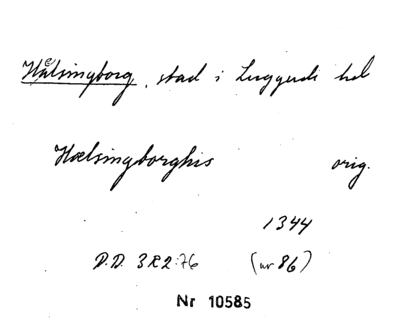 Hälsingborg, stad i Luggude hd
Hælsingborghis orig.
1344
D.D. 3R2:76 (nr 86)
Nr 10585